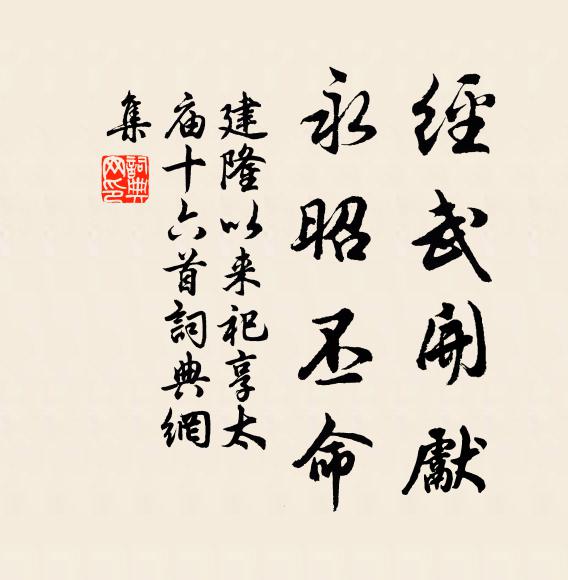 經武開獻
永昭丕命
建隆以来祀享太
庙十六首詞典網
集
詞典
网印